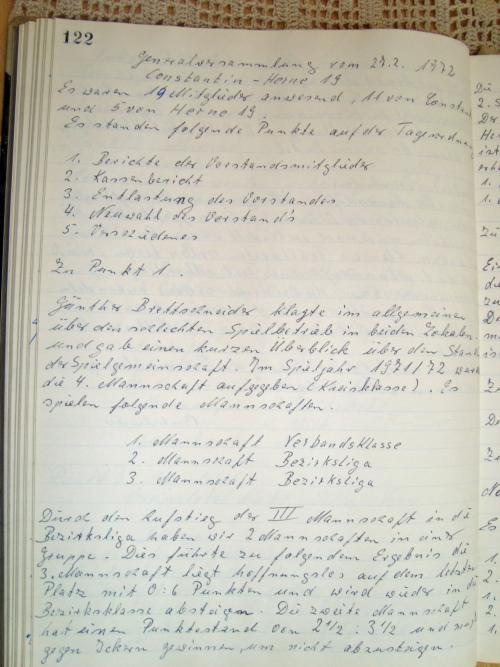 122
Generalversammlung vom 27.2. 1972
Constantin - Herne 19
Es waren 19 Mitglieder anwesend, 11 von Constan
und 5 von Herne 19.
Es standen folgende Punkte auf der Tagesordnung
1. Berichte der Vorstandsmitglieder
2. Kassenbericht
3. Entlastung des Vorstandes
4. Neuwahl des Vorstands
5. Verschiedenes
Zu Punkt 1.
Günther Brettschneider klagte im allgemeinen
über den schlechten Spielbetrieb in beiden Lokalen
und gab einen kurzen Überblick über den Stand
der Spielgemeinschaft. Im Spieljahr 1971/72 wurde
die 4. Mannschaft aufgegeben (Kreisklasse). Es
spielen folgende Mannschaften.
1. Mannschaft Verbandsklasse
2. Mannschaft Bezirksliga
3. Mannschaft Bezirksliga
Durch den Aufstieg der III Mannschaft in die
Bezirksliga haben wir 2 Mannschaften in einer
Gruppe. Dies führte zu folgendem Ergebnis die
3. Mannschaft liegt hoffnungslos auf dem letzten
Platz mit 0:6 Punkten und wird wieder in die
Bezirksklasse absteigen. Die zweite Mannschaft
hat einen Punktestand von 2 1/2 : 3 1/2 und muß
gegen Ickern gewinnen, um nicht abzusteigen.